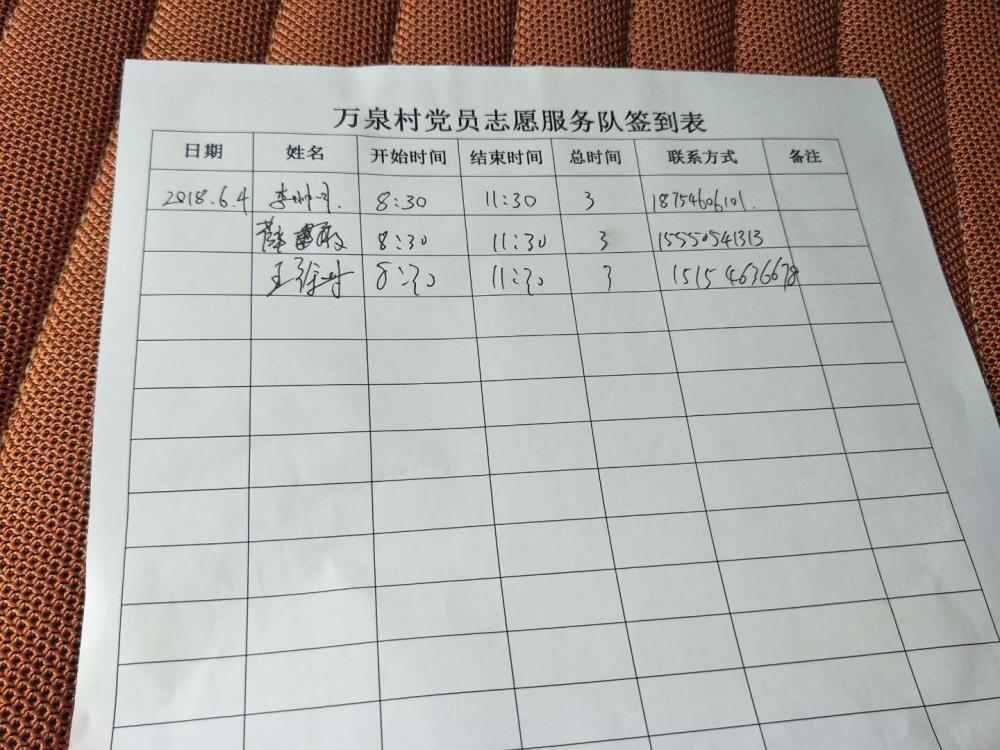 万泉村党员志愿服务队签到表
日期 姓名 开始时间 结束时间 总时间 联系方式 备注
2018.6.4 李 8:30 11:30 3 18754606101.
薛 8:30 11:30 3 15550541313
王 8:30 11:30 3 15154636678